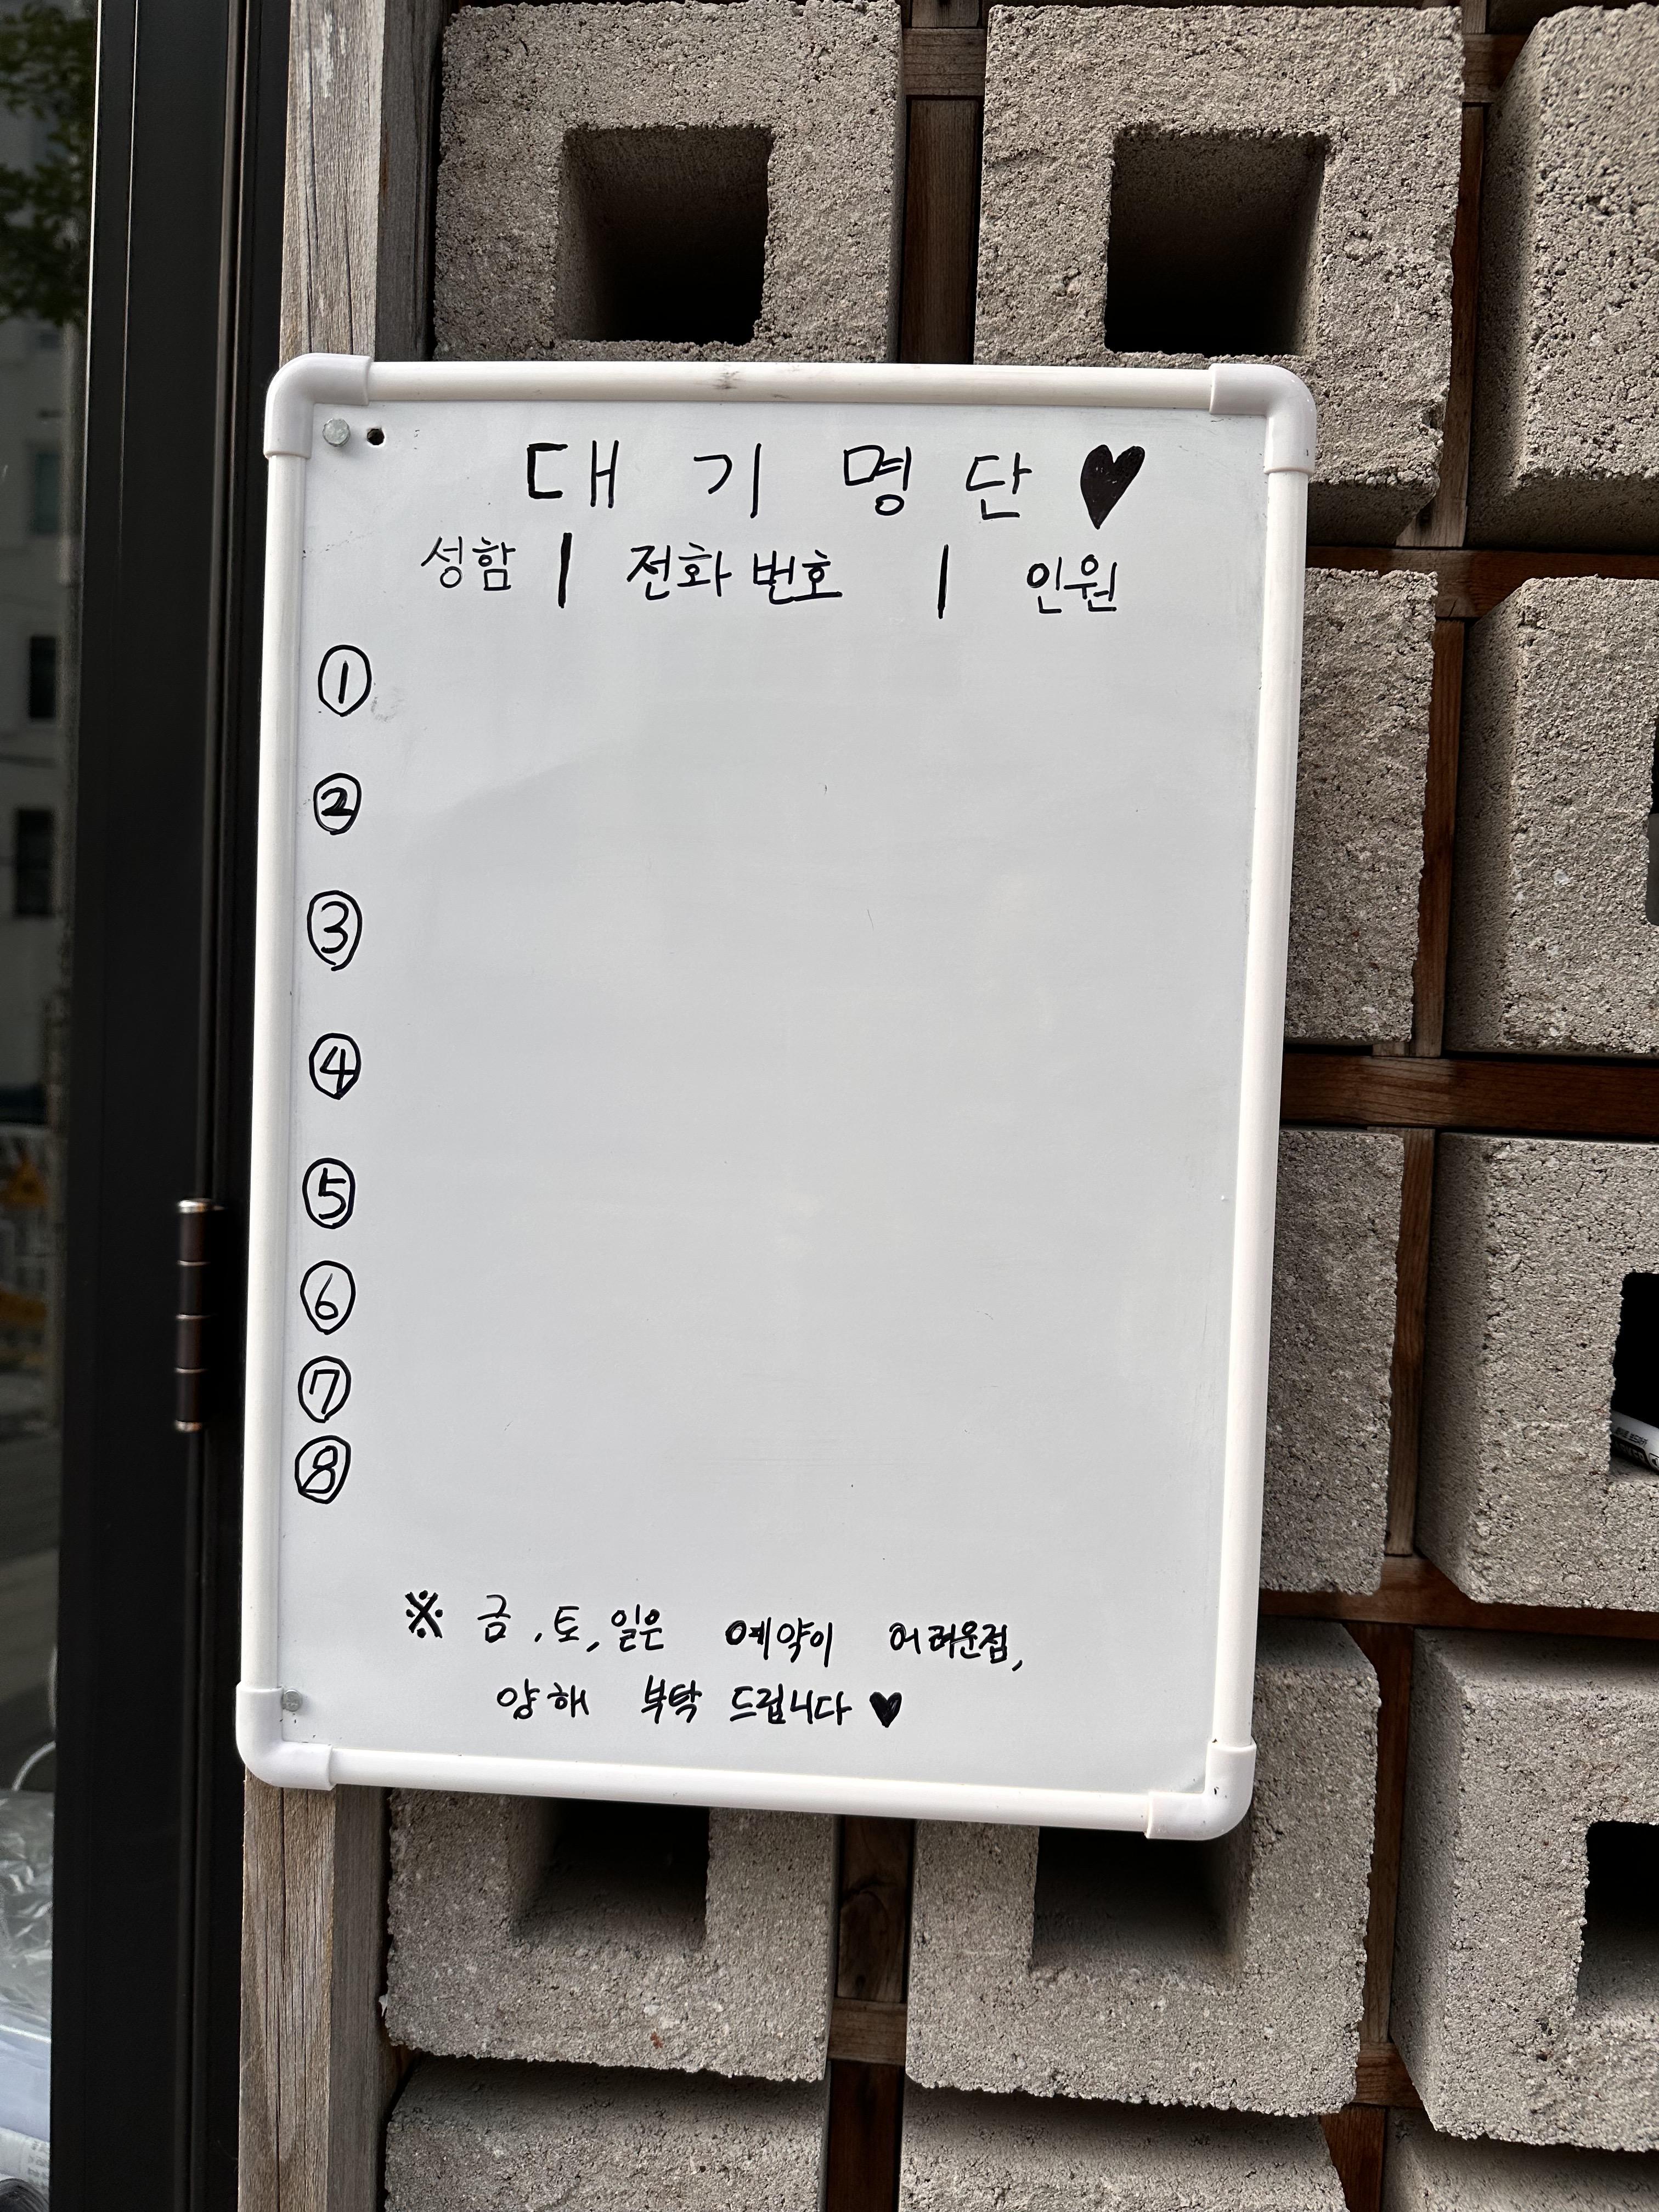 대기명단♥
성함 | 전화번호 | 인원
①
②
③
④
⑤
⑥
⑦
⑧
※ 금, 토, 일은 예약이 어려운점,
양해 부탁 드립니다♥